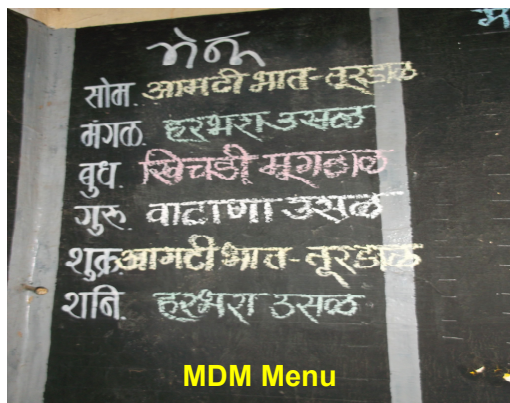 मेनू
सोम. आमटी भात-तूरडाळ
मंगळ. हरभरा उसळ
बुध. खिचडी मूगडाळ
गुरु. वाटाणा उसळ
शुक्र. आमटी भात-तूरडाळ
शनि. हरभरा उसळ
MDM Menu